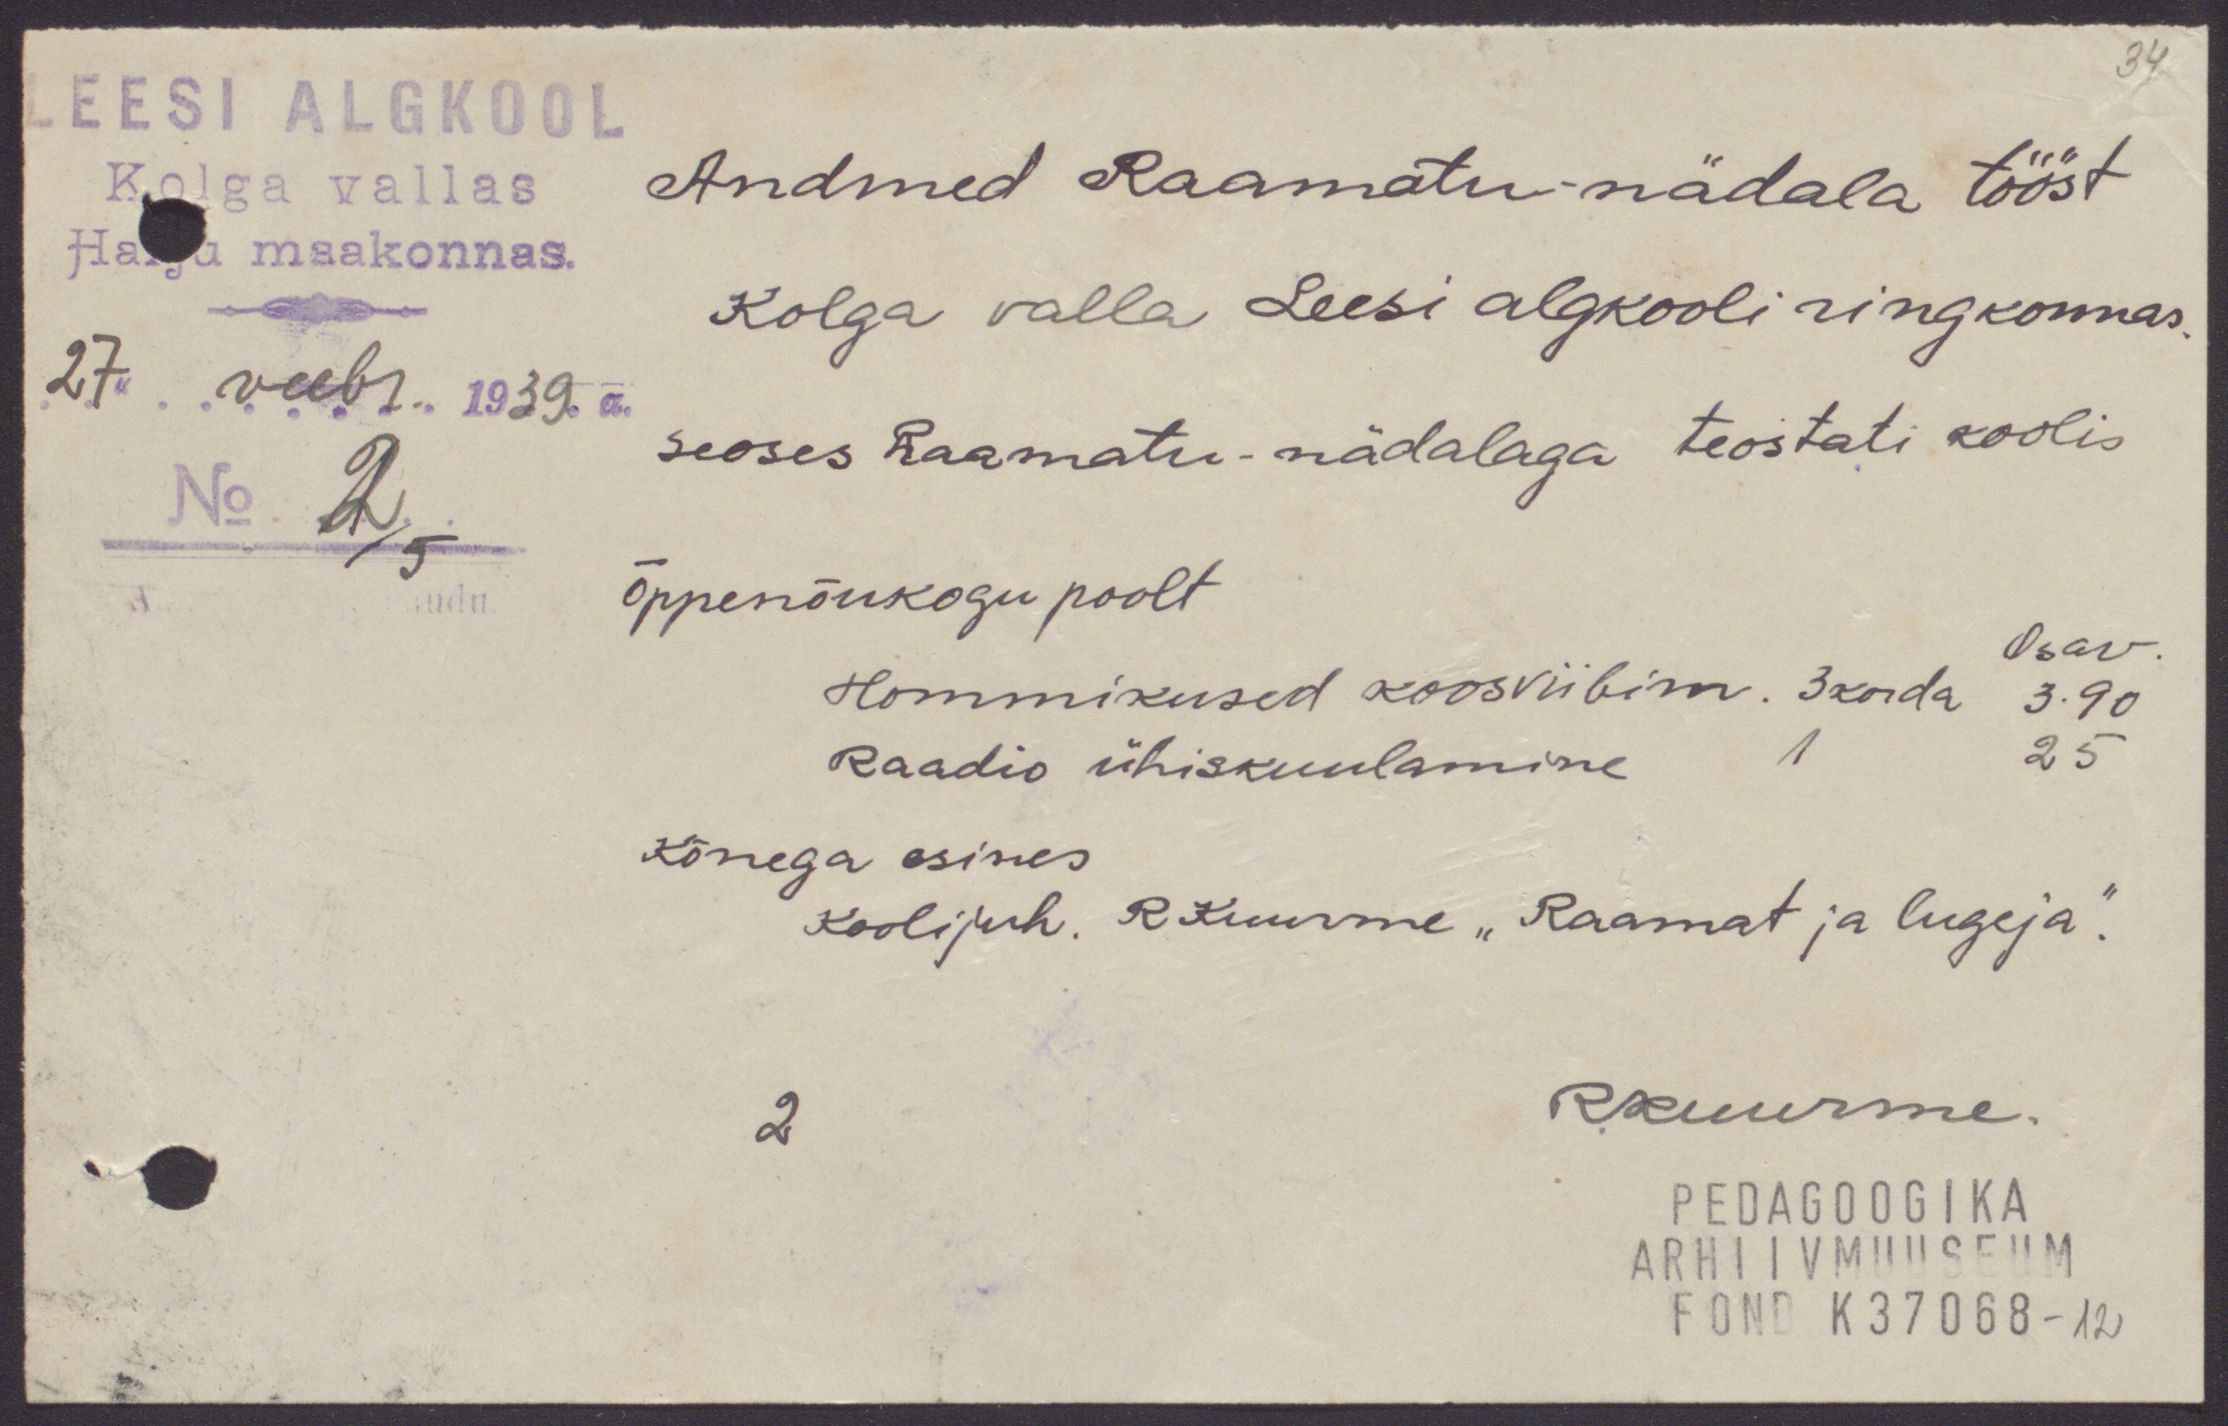 34
LEESI ALGKOOL
Kolga vallas
Harju maakonnas.
27" veebr. 1939. a.
No. 2/5
Andmed Raamatu-nädala tööst
Kolga valla Leesi algkooli ringkonnas.
Seoses Raamatu-nädalaga teostati koolis
Õppenõukogu poolt
Osav.
Hommikused koosviibim. 3 korda 3.90
Raadio ühiskuulamine 1 25
Kõnega esines
Koolijuh. R Kuurme „Raamat ja lugeja".
2
R. Kuurme.
PEDAGOOGIKA
ARHIIVMUUSEUM
FOND K37068-12